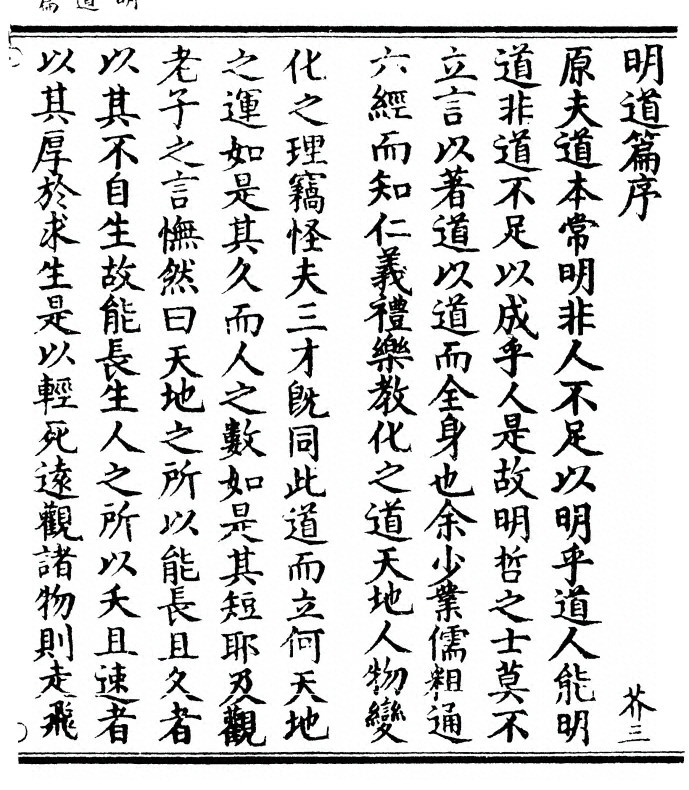 明道篇序
芥三
原夫道本常明非人不足以明乎道人能明
道非道不足以成乎人是故明哲之士莫不
立言以著道以道而全身也余少業儒粗通
六經而知仁義禮樂教化之道天地人物變
化之理竊怪夫三才旣同此道而立何天地
之運如是其久而人之數如是其短耶及觀
老子之言憮然曰天地之所以能長且久者
以其不自生故能長生人之所以夭且速者
以其厚於求生是以輕死遠觀諸物則走飛